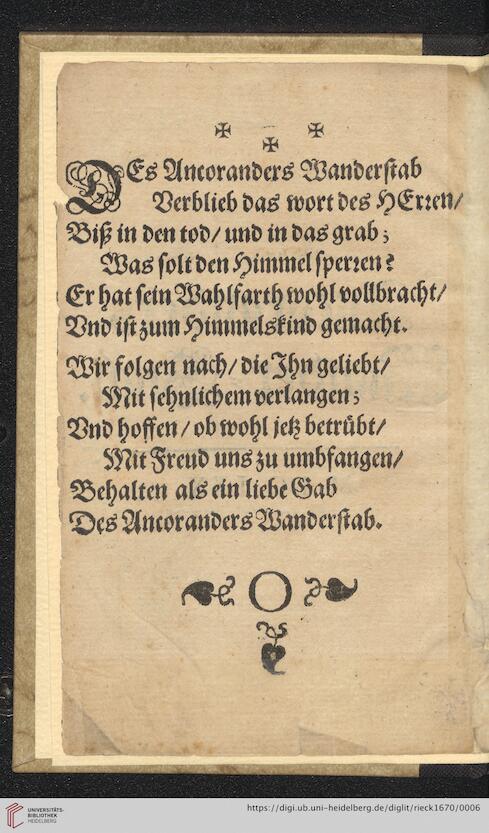 DEs Ancoranders Wanderstab
Verblieb das wort des HErren/
Biß in den tod/ und in das grab;
Was solt den Himmel sperren?
Er hat sein Wahlfarth wohl vollbracht/
Vnd ist zum Himmelskind gemacht.
Wir folgen nach/ die Ihn geliebt/
Mit sehnlichem verlangen;
Vnd hoffen/ ob wohl jetz betrübt/
Mit Freud uns zu umbfangen/
Behalten als ein liebe Gab
Des Ancoranders Wanderstab.
O
UNIVERSITÄTS-
BIBLIOTHEK
HEIDELBERG
https://digi.ub.uni-heidelberg.de/diglit/rieck1670/0006